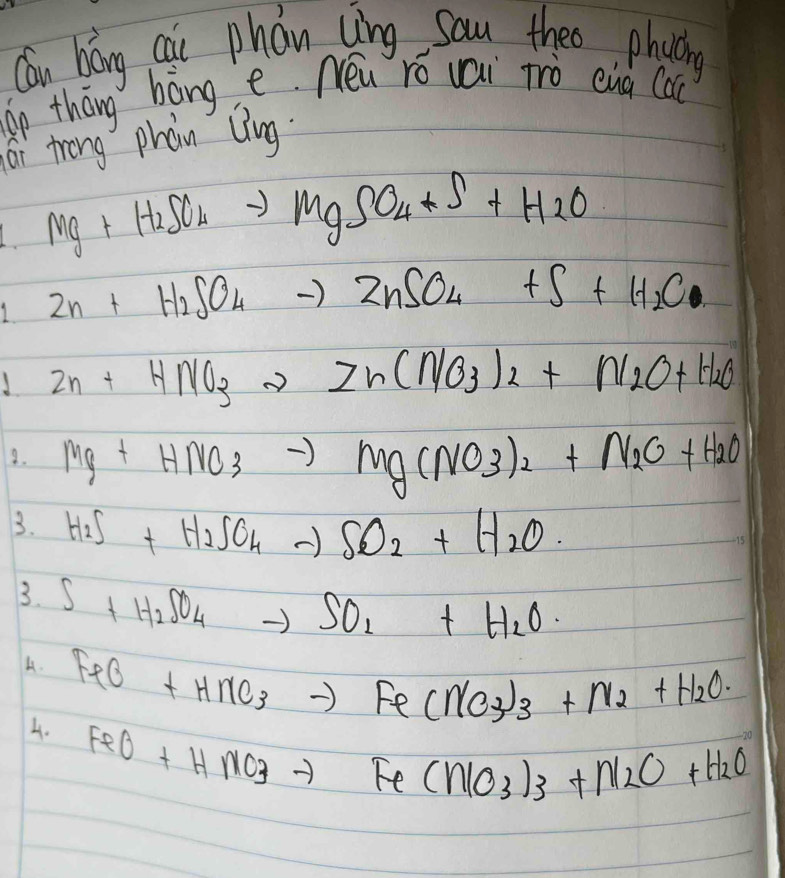 Cân bằng các phản ứng sau theo phương
háp thăng bằng e. Nêu rõ vai trò của các
trong phản ứng.
1. Mg + H2SO4 → MgSO4 + S + H2O
1 Zn + H2SO4 → ZnSO4 + S + H2O
2 Zn + HNO3 → Zn(NO3)2 + N2O + H2O
2. Mg + HNO3 → Mg(NO3)2 + N2O + H2O
3. H2S + H2SO4 → SO2 + H2O.
3. S + H2SO4 → SO2 + H2O.
4. FeO + HNO3 → Fe(NO3)3 + N2 + H2O.
4. FeO + HNO3 → Fe(NO3)3 + N2O + H2O